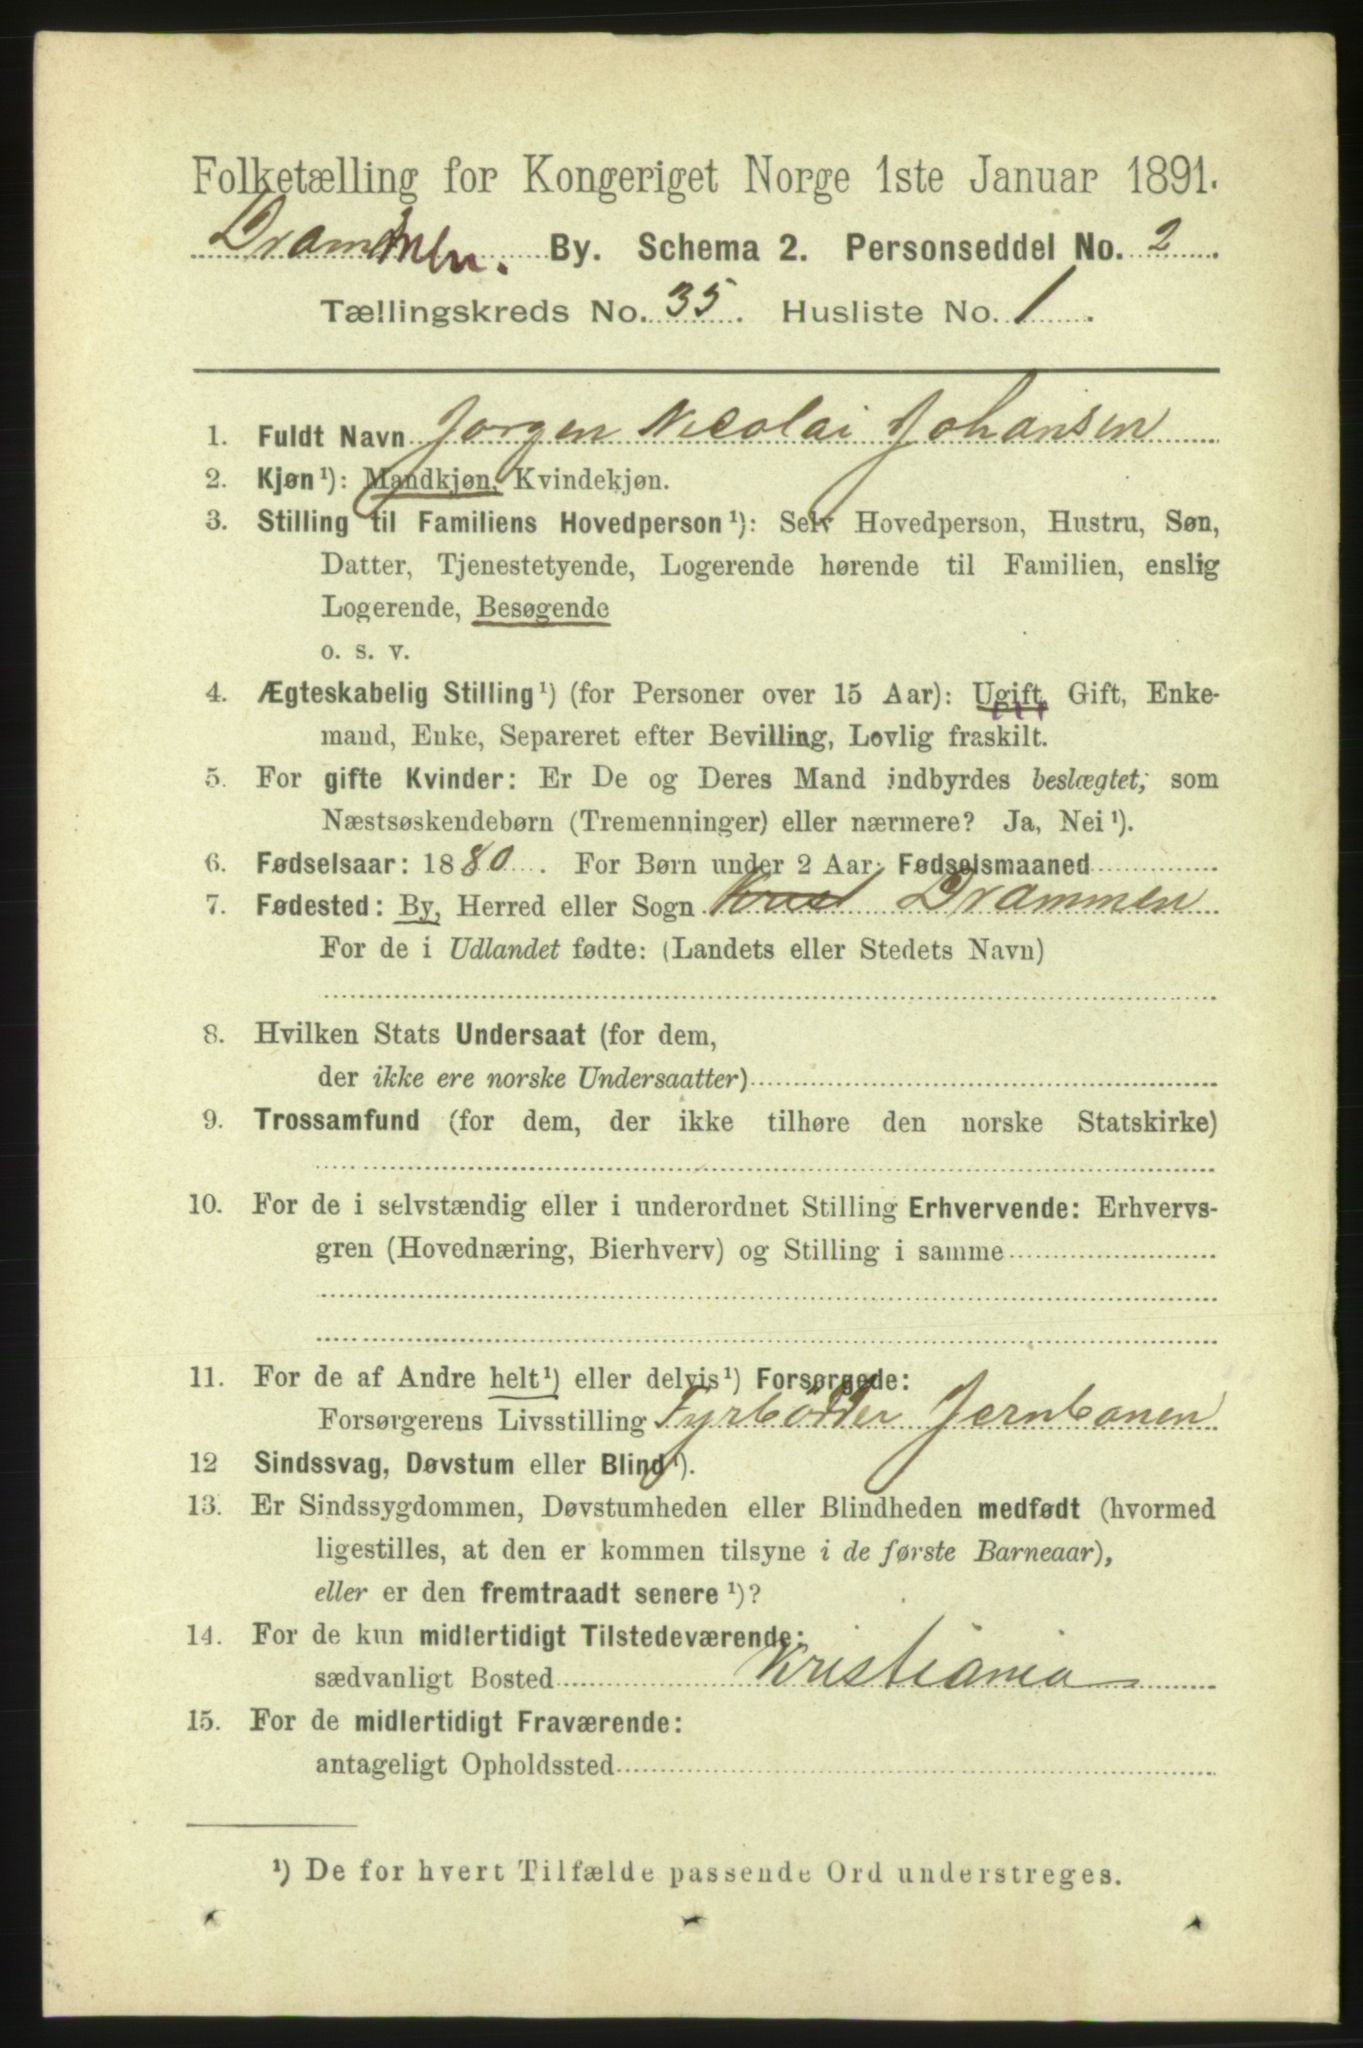 Folketælling for Kongeriget Norge 1ste Januar 1891.
Drammen. By. Schema 2. Personseddel No. 2.
Tællingskreds No. 35. Husliste No. 1.
1. Fuldt Navn Jorgen Nicolai Johansen
2. Kjøn¹): Mandkjøn, Kvindekjøn.
3. Stilling til Familiens Hovedperson¹): Selv Hovedperson, Hustru, Søn,
Datter, Tjenestetyende, Logerende hørende til Familien, enslig
Logerende, Besøgende
o. s. v.
4. Ægteskabelig Stilling¹) (for Personer over 15 Aar): Ugift, Gift, Enke-
mand, Enke, Separeret efter Bevilling, Lovlig fraskilt.
5. For gifte Kvinder: Er De og Deres Mand indbyrdes beslægtet, som
Næstsøskendebørn (Tremenninger) eller nærmere? Ja, Nei¹).
6. Fødselsaar: 1880. For Børn under 2 Aar: Fødselsmaaned
7. Fødested: By, Herred eller Sogn Drammen
For de i Udlandet fødte: (Landets eller Stedets Navn)
8. Hvilken Stats Undersaat (for dem,
der ikke ere norske Undersaatter)
9. Trossamfund (for dem, der ikke tilhøre den norske Statskirke)
10. For de i selvstændig eller i underordnet Stilling Erhvervende: Erhvervs-
gren (Hovednæring, Bierhverv) og Stilling i samme
11. For de af Andre helt¹) eller delvis¹) Forsørgede:
Forsørgerens Livsstilling Fyrbödder Jernbanen
12 Sindssvag, Døvstum eller Blind¹).
13. Er Sindssygdommen, Døvstumheden eller Blindheden medfødt (hvormed
ligestilles, at den er kommen tilsyne i de første Barneaar),
eller er den fremtraadt senere¹)?
14. For de kun midlertidigt Tilstedeværende:
sædvanligt Bosted Kristiania
15. For de midlertidigt Fraværende:
antageligt Opholdssted
¹) De for hvert Tilfælde passende Ord understreges.